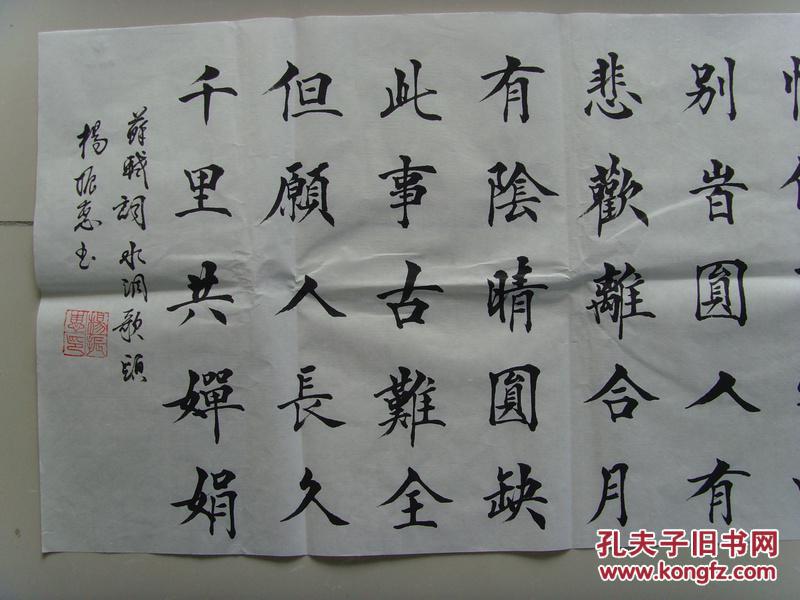 别岿圓人有
悲歡離合月
有陰晴圓缺
此事古難全
但願人長久
千里共嬋娟
蘇軾詞水調歌頭
楊振惠书
楊振惠印
孔夫子旧书网
www.kongfz.com